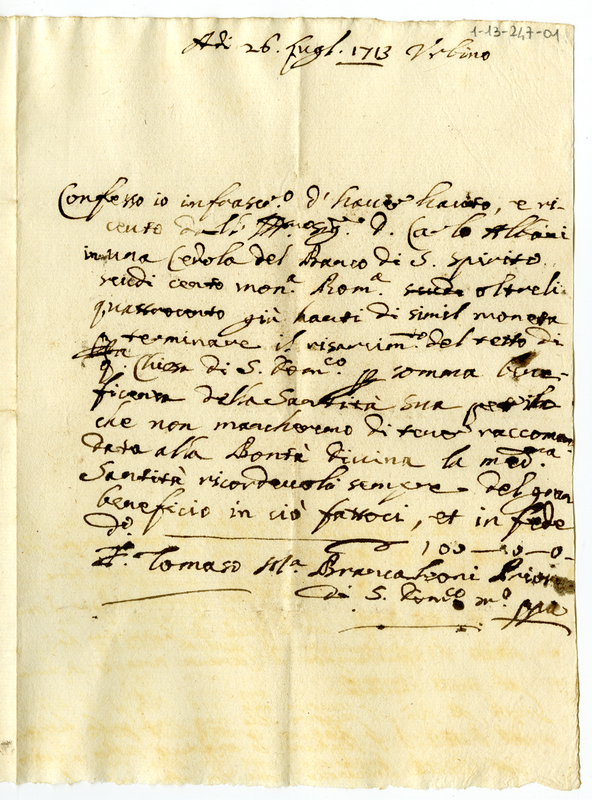 1-13-247-01
Adi 26. Lugl. 1713 Urbino
Confesso io infrascr.o d'haver havuto, e ri-
ceuto dall' Ill.mo Sig.r D. Carlo Albani
in una Cedola del Banco di S. Spirito
scudi cento mon.a Rom.a oltre li
quattrocento già hauti di simil moneta
terminare il risarcim.to del tetto di
q. Chiesa di S. Dom.co p somma bene-
ficenza della Santità sua
che non mancheremo di tener raccoman-
data alla Bontà divina la med.ma
Santità ricordevoli sempre del gran
beneficio in ciò fattoci, et in fede
100-0-0-
F. Tomaso M.a Brancaleoni Priore
di S. Dom.co m.o ppa